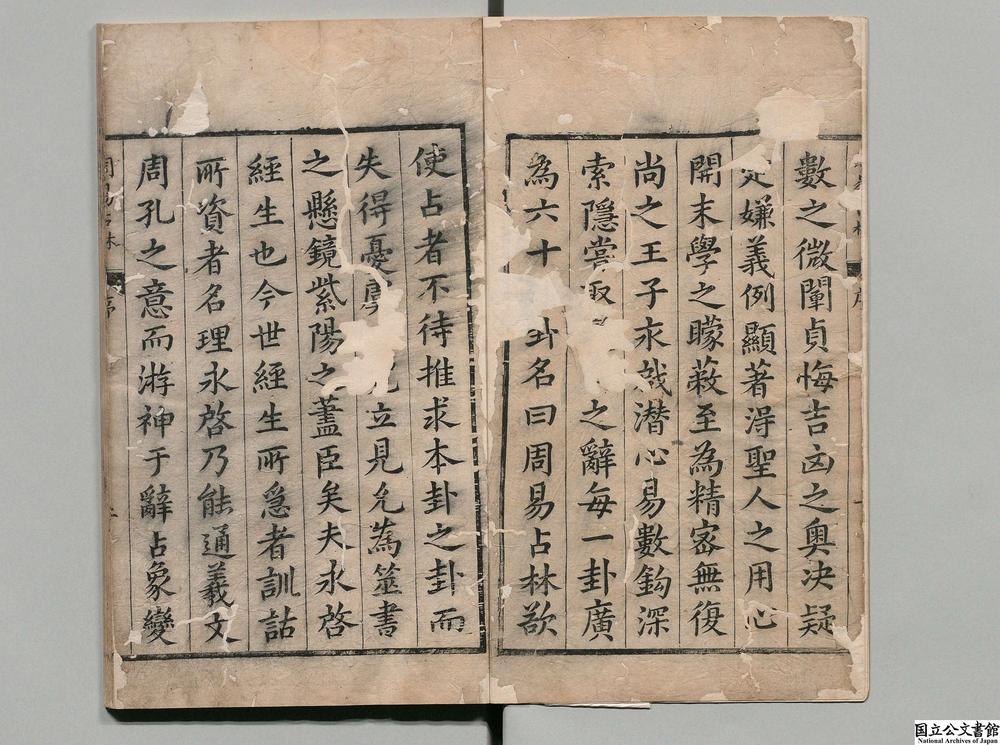 數之微闡貞悔吉凶之奥决疑
定嫌義例顯著淂聖人之用心
開末學之矇蔽至為精宻無復
尚之王子求㦲潛心易數鈎深
索隱嘗取之辭每一卦廣
為六十卦名曰周易占林欲
使占者不待推求本卦之卦而
失得憂虞立見允為筮書
之懸鏡紫陽之藎臣矣夫永啓
經生也今世經生所急者訓詁
所資者名理永啓乃能通羲文
周孔之意而游神于辭占象變
周易占林
序
二
国立公文書館
National Archives of Japan